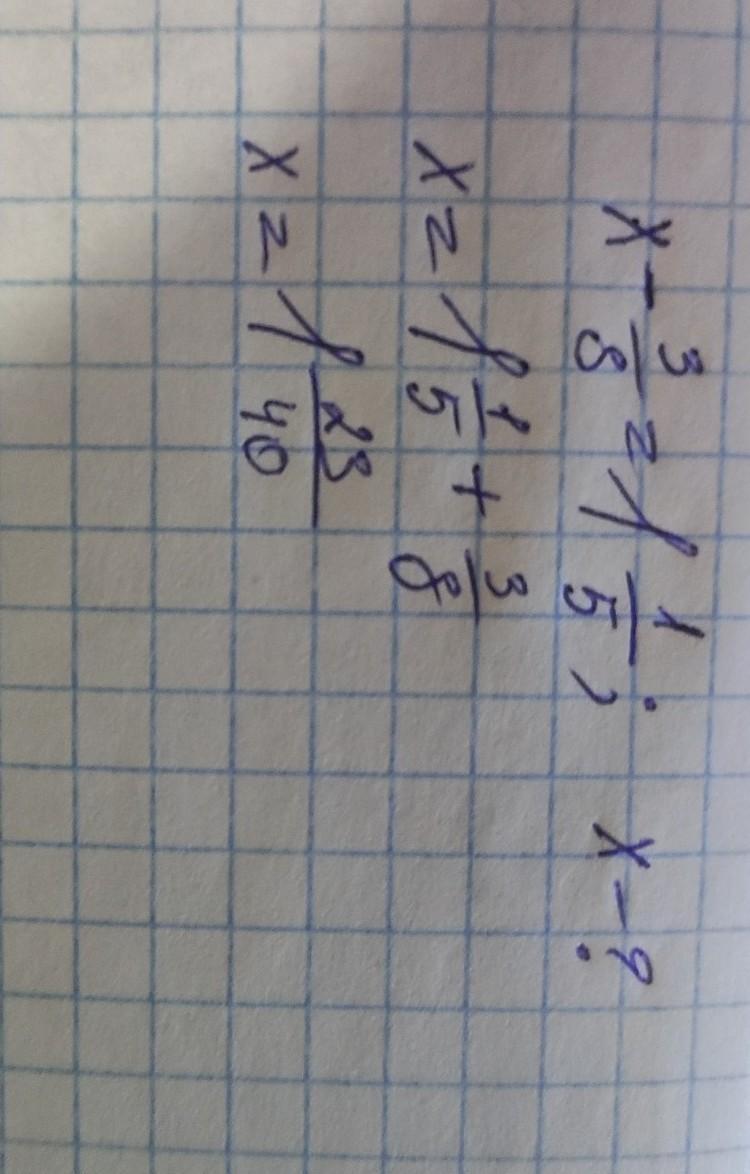 x - 3/8 = 1 1/5; x - ?
x = 1 1/5 + 3/8
x = 1 23/40